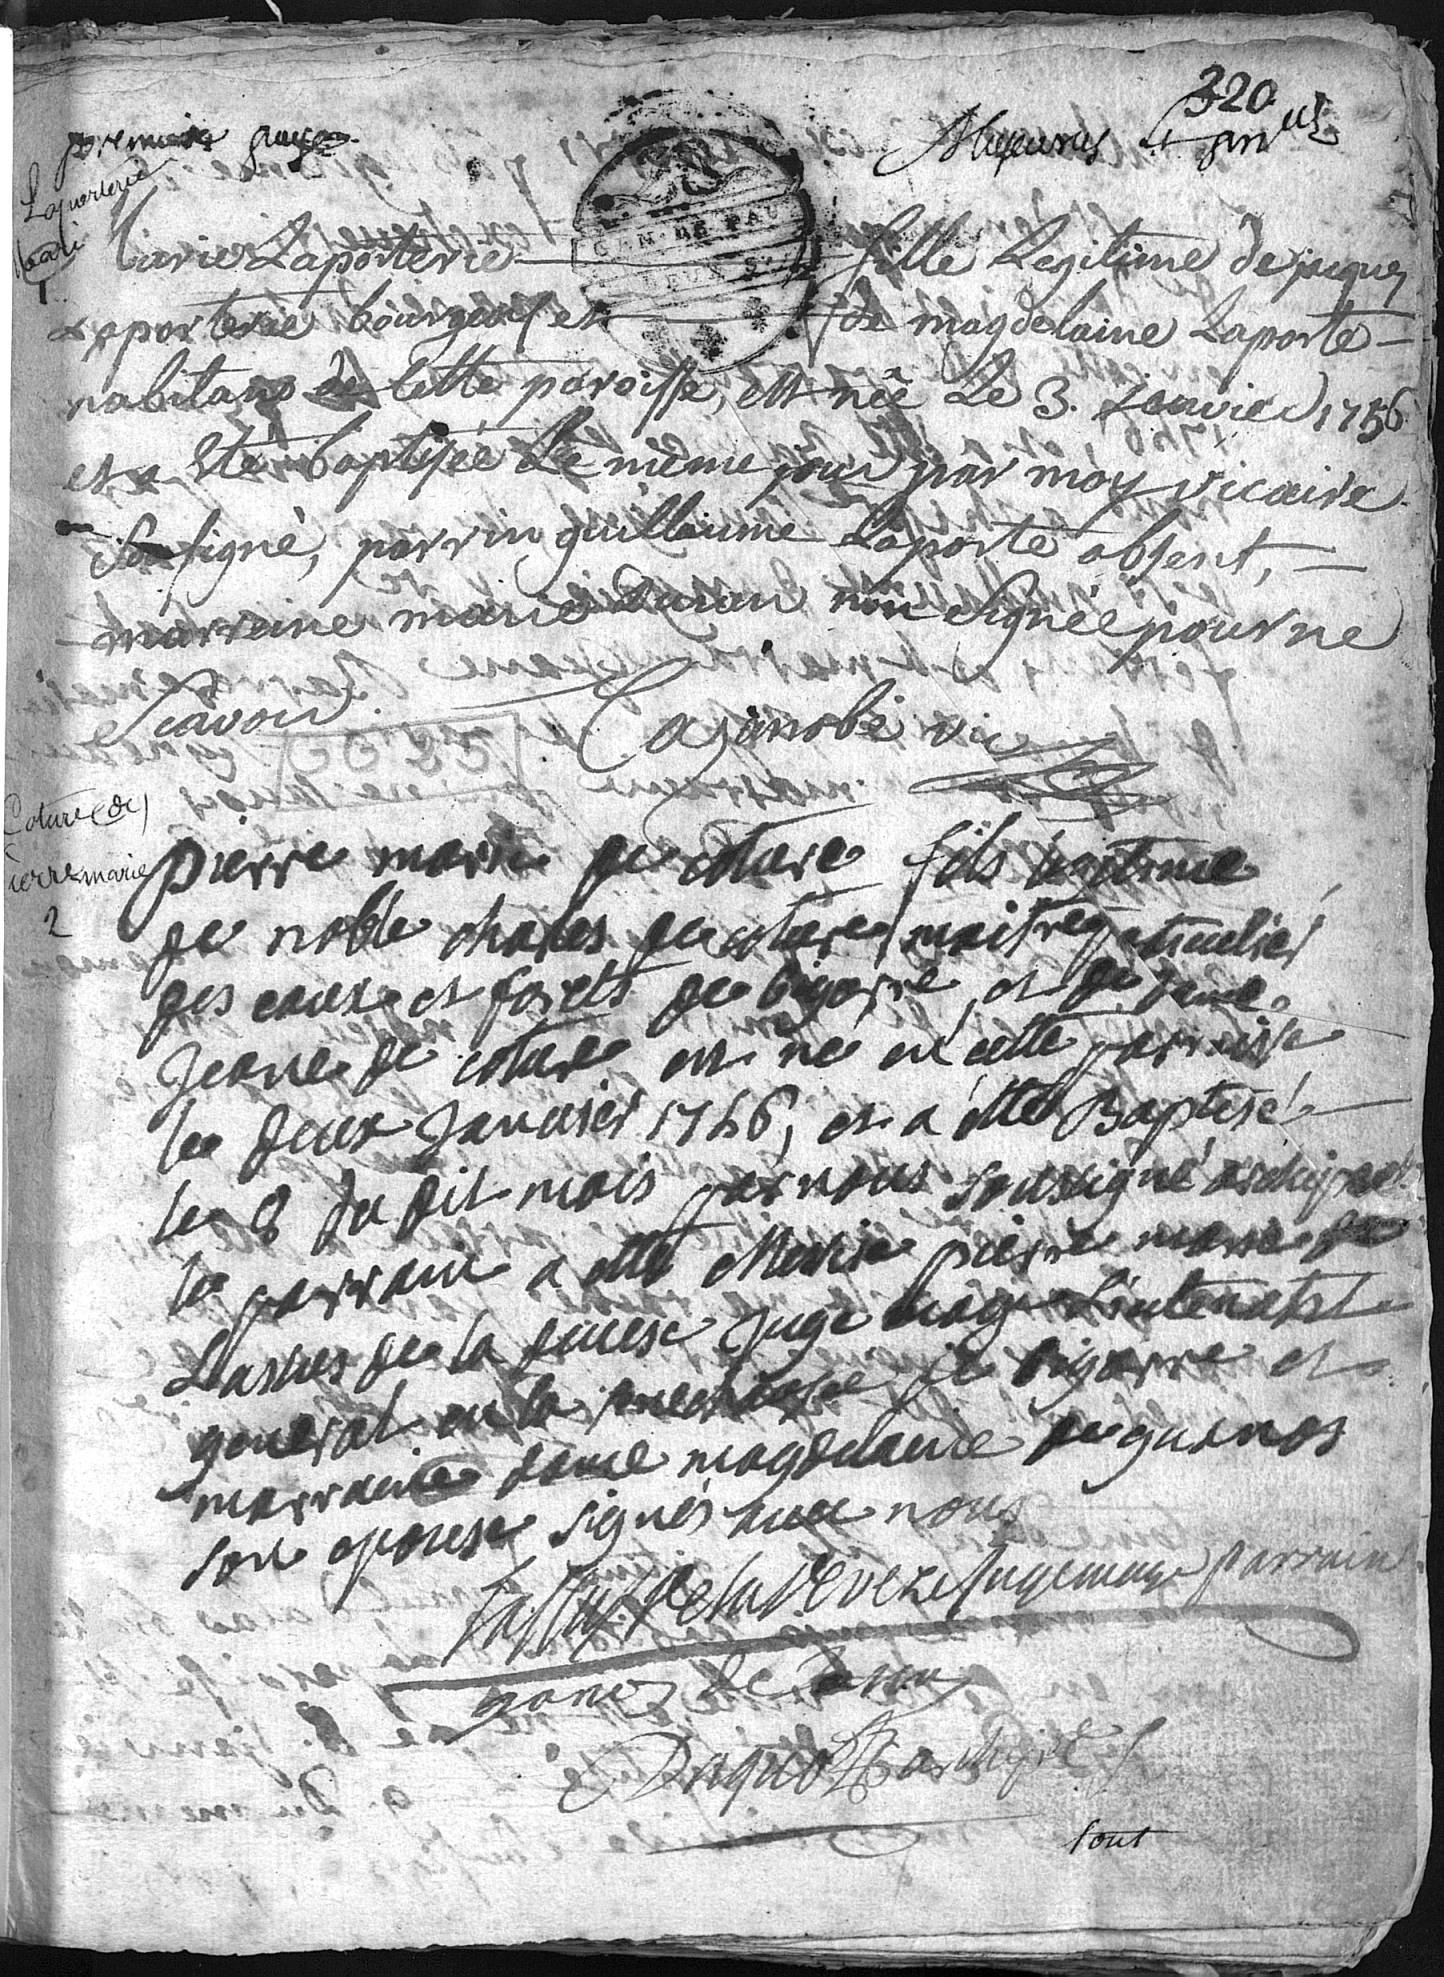 320
premiere page
Laporterie
Marie Laporterie fille Legitime de jaques
Laporterie bourgeois et de magdelaine Laporte
habitans de cette paroisse, est née Le 3. Janvier 1756
et a été baptisée Le même jour par moy vicaire
Soussigné, parrin guillaume Laporte absent,
marreine marie non Signée pour ne
Scavoir. Cazanobe vic
1
Coture (de)
pierre marie
2
pierre marie de coture fils legitime
de noble charles de coture maitre particulier
des eaux et forets de bigorre, et de dame
Jeane de coture est né en cette parroisse
le deux Janvier 1756, et a etté Baptisé
le 8 du dit mois par nous soussigné archiprêt.
le parrain a etté Messire pierre marie de
Lassus de la deveze Juge mage Lieutenant
general en la senechaussée de bigorre et
marraine dame magdelaine de
son epouse signés avec nous
Lassus De La Deveze Jugemage parrain
archiprê
tout